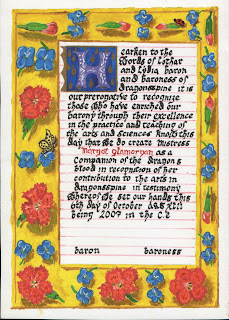 Hearken to the
Words of Lothar
and Lydia baron
and baroness of
dragonsspine it is
our prerogative to recognize
those who have enriched our
barony through their excellence
in the practice and teaching of
the arts and sciences Know this
day that we do create mistress
Margot glamorgan as a
Companion of the dragons
blood in recognition of her
contribution to the arts in
dragonsspine in testimony
whereof we set our hands this
6th day of October
being 2007 in the C.E
baron baroness